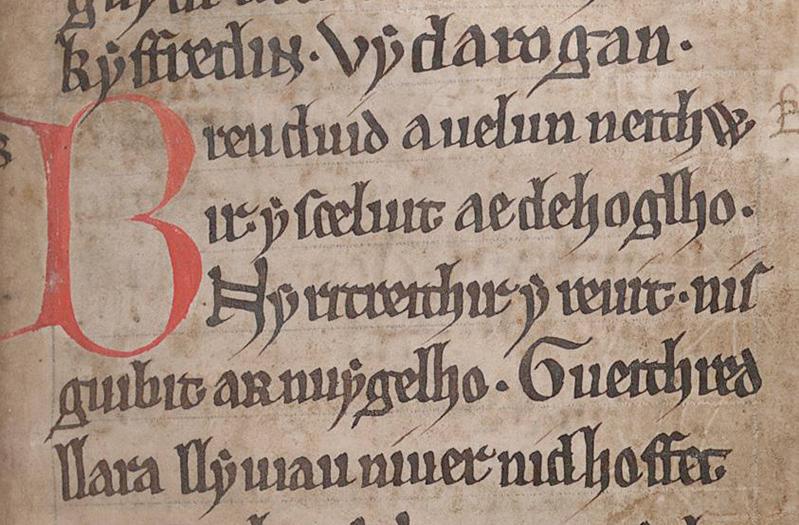 kyffredin. Vy darogan.
Breuduid auelun neithw
ir. ys celuit ae dehoglho.
Ny ritreithir y reuit. nis
guibit ar nuy gelho. Gueithred
llara llyuiau niuer nid hoffet